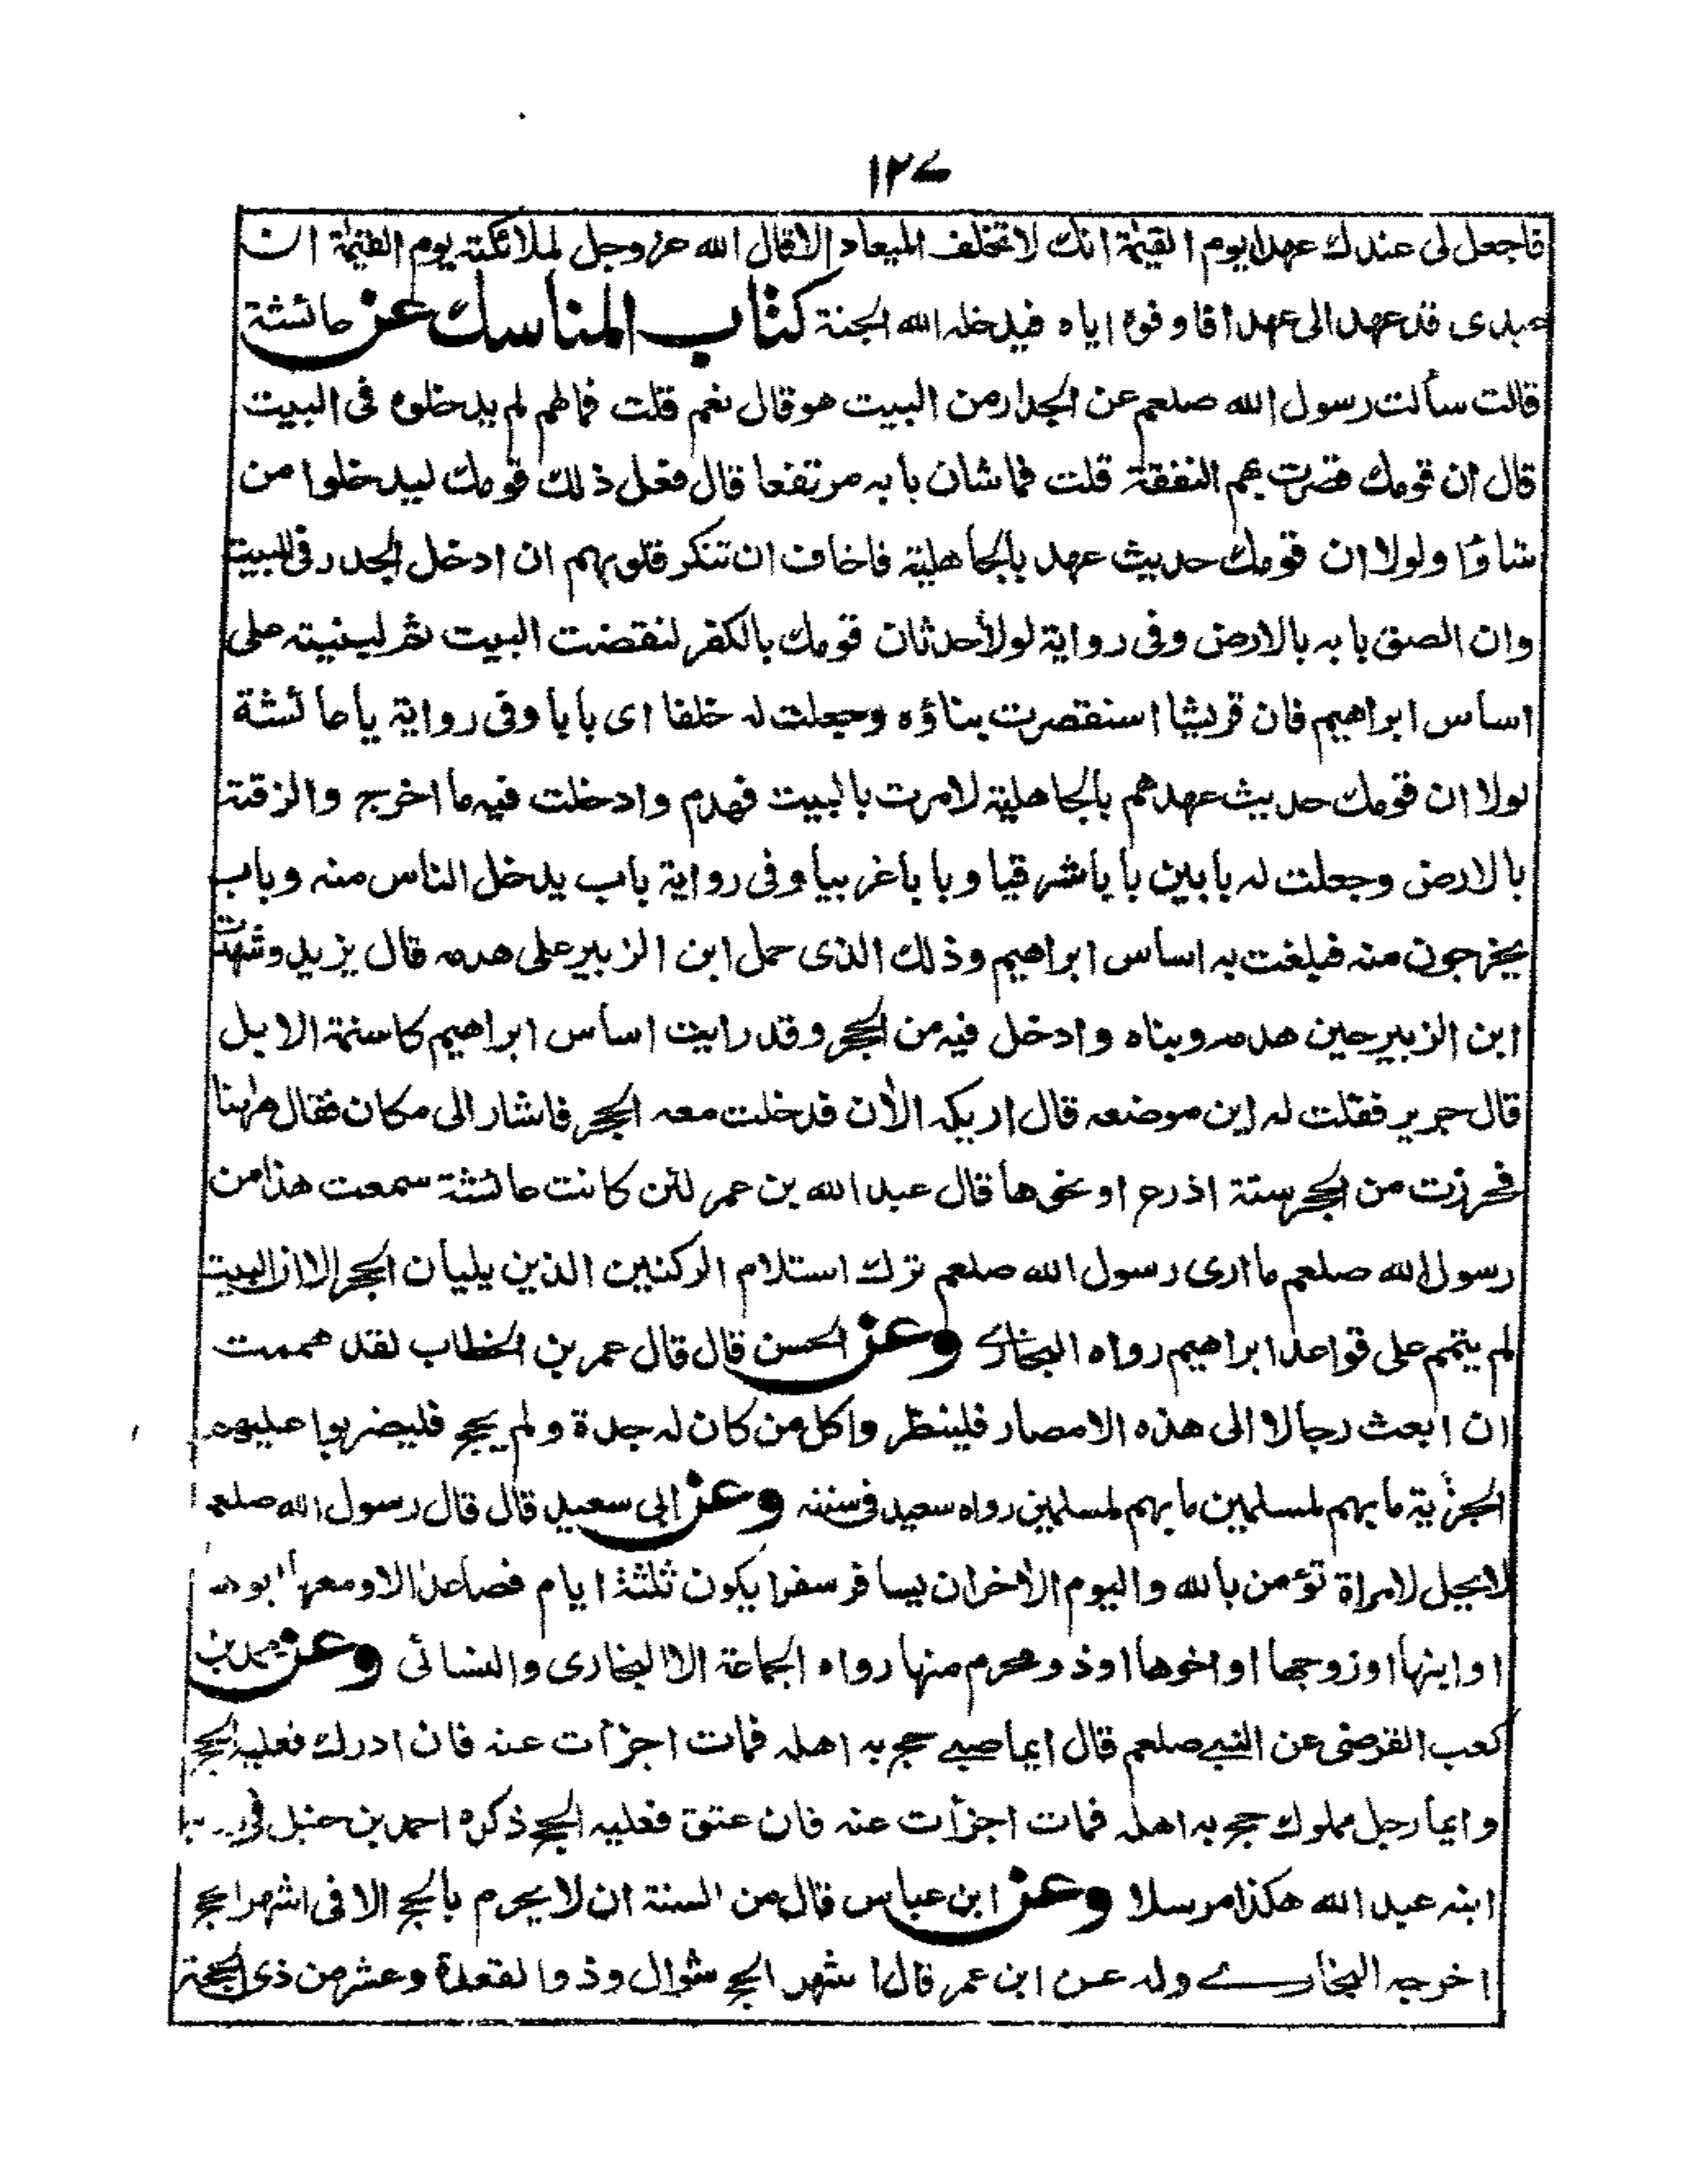 ١٢٧
فاجعل لى عندك عهدا يوم القيٰمة انك لا تخلف الميعاد الا قال الله عز وجل لملائكته يوم القيٰمة ان
عبدى قد عهد الى عهدا فاوفوه اياه فيدخله الله الجنة كتاب المناسك عن عائشة
قالت سألت رسول الله صلعم عن الجدار من البيت هو قال نعم قلت فما لهم لم يدخلوه فى البيت
قال ان قومك قصرت بهم النفقة قلت فما شان بابه مرتفعا قال فعل ذلك قومك ليدخلوا من
شاؤا ولولا ان قومك حديث عهد بالجاهلية فاخاف ان تنكر قلوبهم ان ادخل الجدر فى البيت
وان الصق بابه بالارض وفى رواية لولا حدثان قومك بالكفر لنقضت البيت ثم لبنيته على
اساس ابراهيم فان قريشا استقصرت بناؤه وجعلت له خلفا اى بابا وفى رواية يا عائشة
لولا ان قومك حديث عهدهم بالجاهلية لامرت بالبيت فهدم وادخلت فيه ما اخرج والزقته
بالارض وجعلت له بابين بابا شرقيا وبابا غربيا وفى رواية باب يدخل الناس منه وباب
يخرجون منه فبلغت به اساس ابراهيم وذلك الذى حمل ابن الزبير على هدمه قال يزيد وشهدت
ابن الزبير حين هدمه وبناه وادخل فيه من الحجر وقد رايت اساس ابراهيم كاسنمة الابل
قال جرير فقلت له اين موضعه قال اريكه الأن فدخلت معه الحجر فاشار الى مكان فقال هٰهنا
فحرزت من الحجر ستة اذرع او نحوها قال عبد الله بن عمر لئن كانت عائشة سمعت هذا من
رسول الله صلعم ما ارى رسول الله صلعم ترك استلام الركنين الذين يليان الحجر الا ان البيت
لم يتمم على قواعد ابراهيم رواه البخارى وعن الحسن قال قال عمر بن الخطاب لقد هممت
ان ابعث رجالا الى هذه الامصار فلينظروا كل من كان له جدة ولم يحج فليضربوا عليهم
الجزية ما بهم لمسلمين ما بهم لمسلمين رواه سعيد فى سننه وعن ابى سعيد قال قال رسول الله صلعم
لا يحل لامراة تؤمن بالله واليوم الأخر ان يسافر سفرا يكون ثلثة ايام فصاعدا الا ومعها ابوها
او ابنها او زوجها او اخوها او ذو محرم منها رواه الجماعة الا البخارى والنسائى وعن محمد بن
كعب القرضى عن النبى صلعم قال ايما صبى حج به اهله فمات اجزأت عنه فان ادرك فعليه الحج
وايما رجل مملوك حج به اهله فمات اجزأت عنه فان عتق فعليه الحج ذكره احمد بن حنبل فى
ابنه عبد الله هكذا مرسلا وعن ابن عباس قال من السنة ان لا يحرم بالحج الا فى اشهر الحج
اخرجه البخارى وله عن ابن عمر قال اشهر الحج شوال وذو القعدة وعشر من ذى الحجة